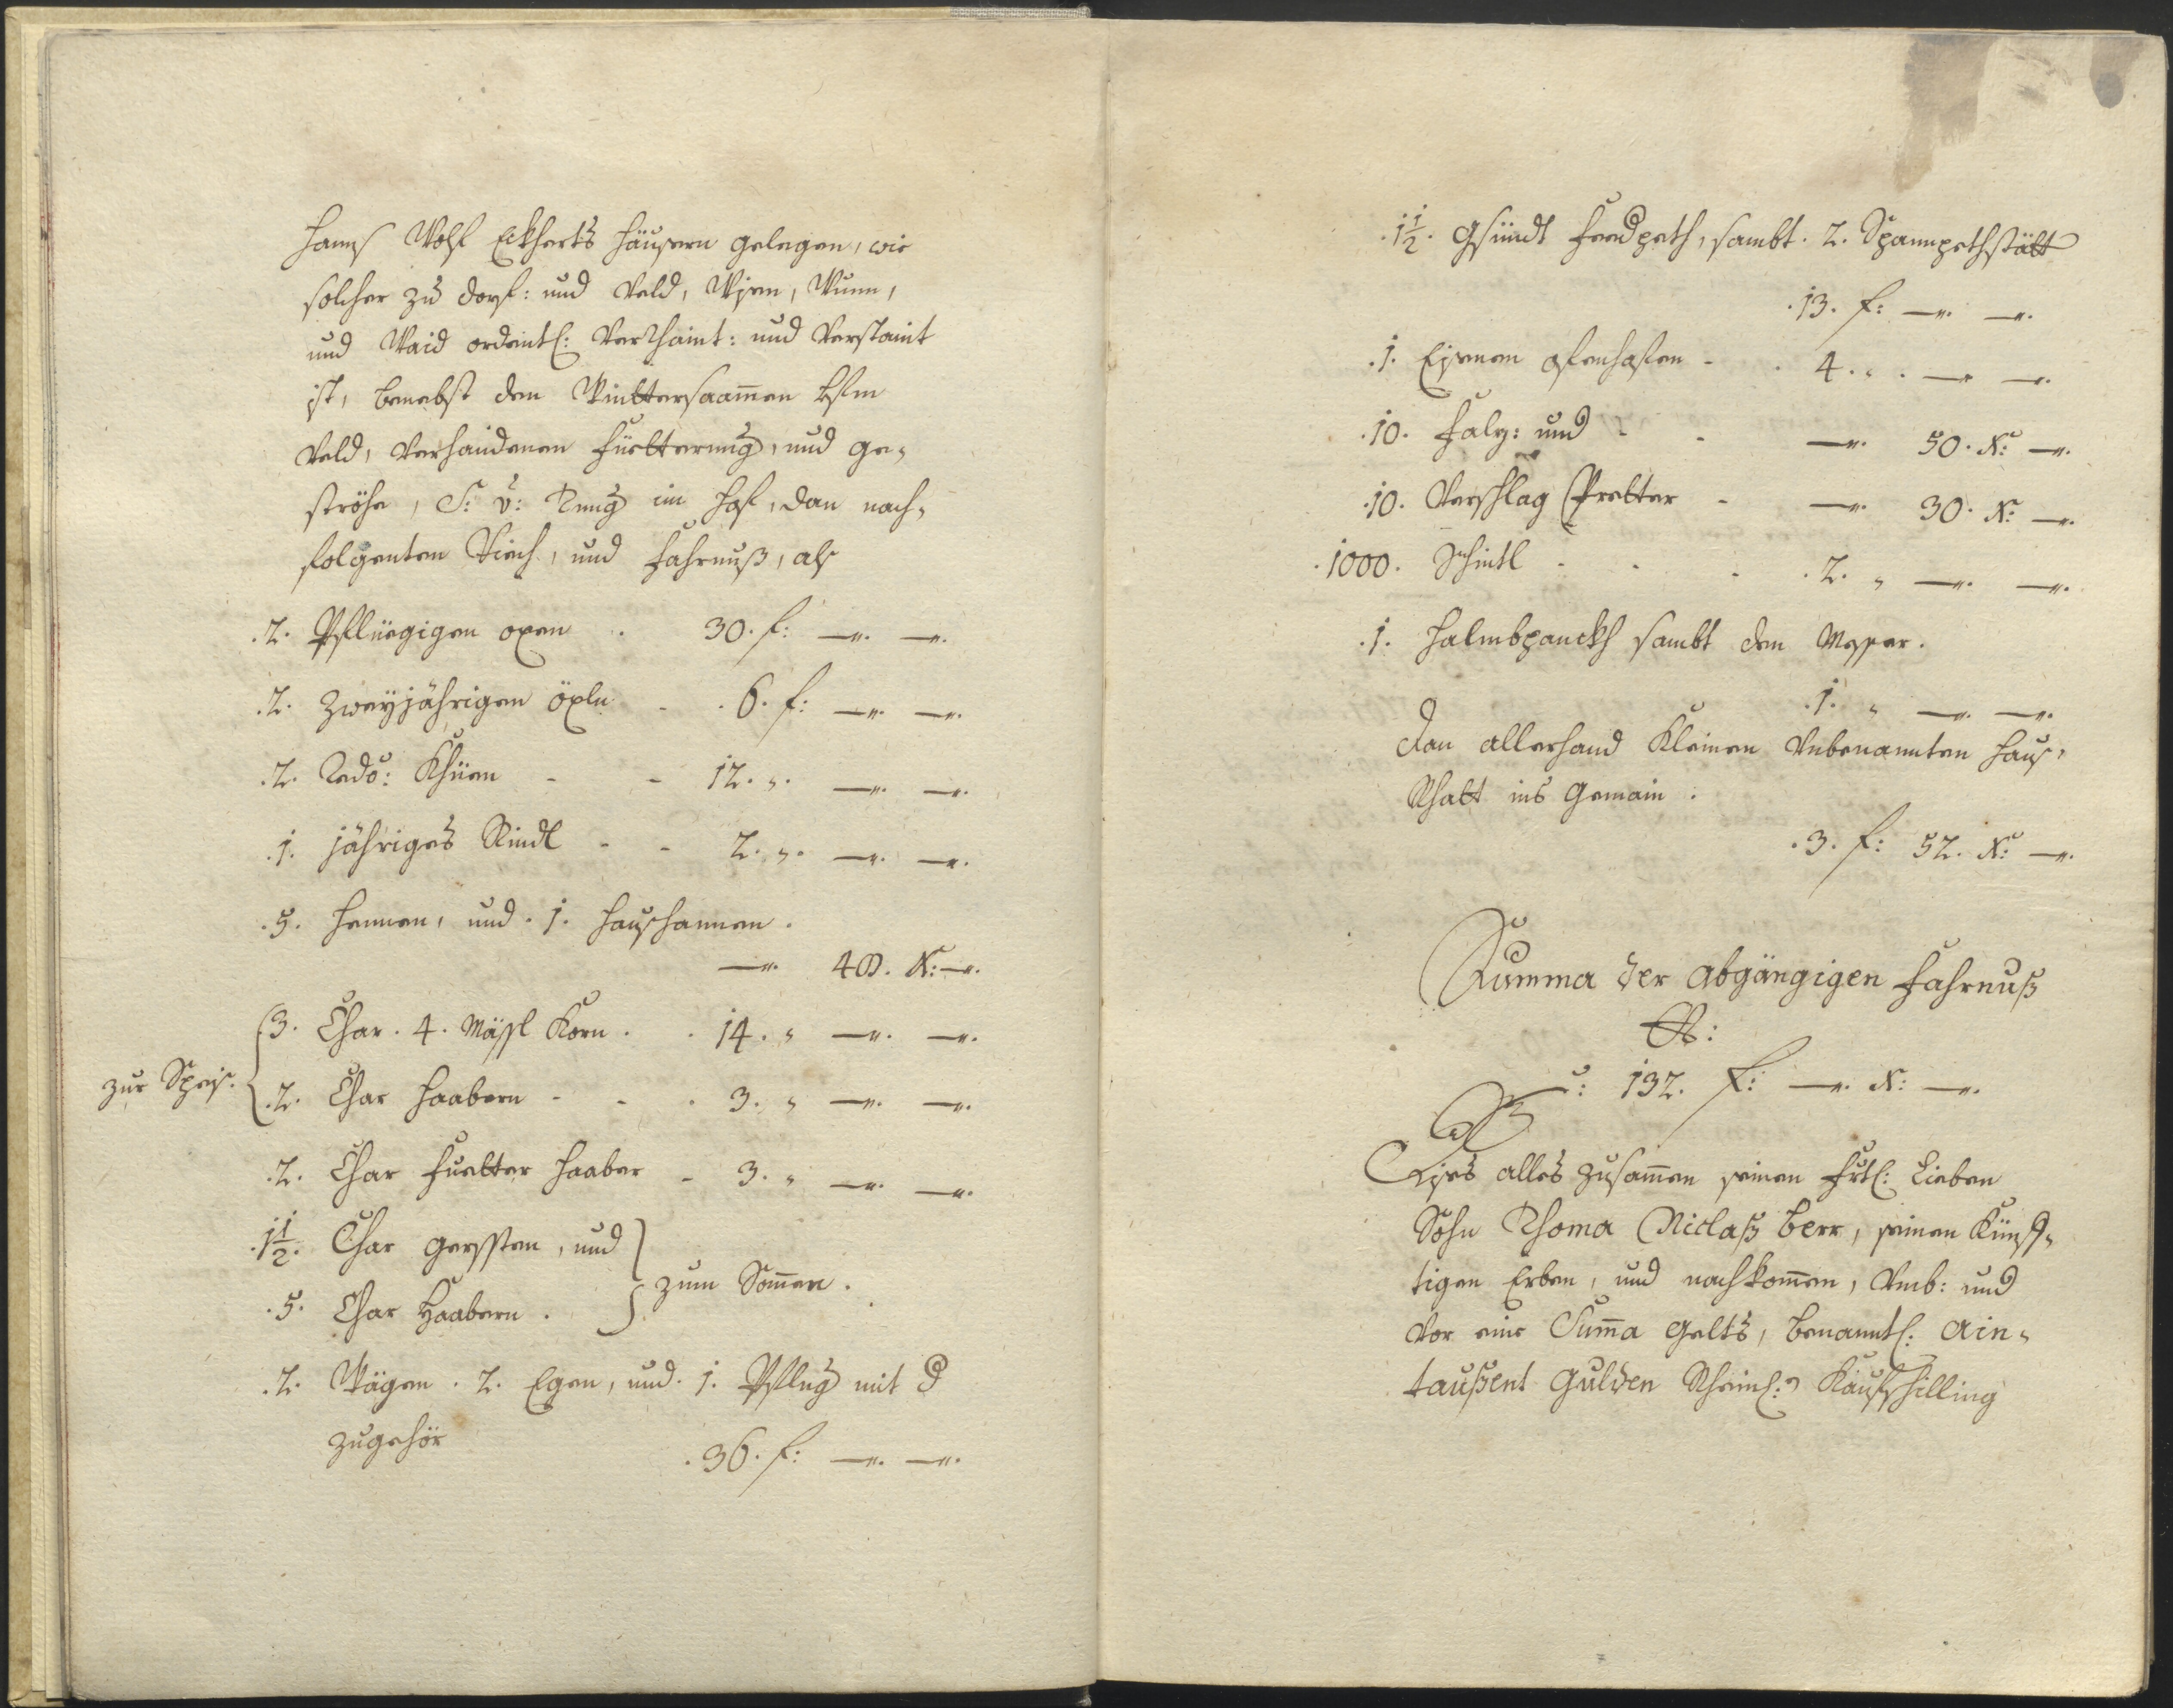 Hannß Wolf Eckherts Häusern gelegen, wie
solcher zu dorf: und Veld, Wisen, Wunn,
und Waid ordentl: Verrhaint: und Verstaint
ist, benebst dem Winttersaamen ufm
Veld, Verhandenen Fuetterung, und ge,
ströhe, S: v: Tung im Hof, dan nach,
folgenten Viech, und Fahrnuß, alß
.2. Pfliegigen oxen . 30. f: —. —.
.2. zweyjährigen öxln . 6. f: —. —.
.2. Redo: Khüen - - 12. ". —. —.
.1. jähriges Rindl - - 2. ". —. —.
.5. Hennen, und .1. Haußhannen .
—. 40. X: —.
3. Char . 4. Mässl Korn . . 14. " —. —.
zur Speiß.
.2. Char Haabern - - . 3. " —. —.
.2. Char Fuetter Haaber - 3. " —. —.
.1 1/2. Char Gerssten, und
zum Saamen .
.5. Char Haabern .
.2. Wägen . 2. Egen, und . 1. Pflug mit
zugehör . 36. f: —. —.
.1 1/2. Gsündt Fendpeth, sambt . 2. Spannpethstätt
.13. f: —. —.
.1. Eisenen ofenhafen - . 4. " . —. —.
.10. Falz: und - - —. 50. X: —.
.10. Verschlag Pretter - —. 30. X: —.
.1000. Schintl - - - . 2. " —. —.
.1. Halmbpanckh sambt dem Messer .
.1. " —. —.
dan allerhand Kleinen Unbenannten Hauß,
Rhatt ins Gemain .
.3. f: 52. X: —.
Summa der abgängigen Fahrnuß
132. f: —. X: —.
Dises alles zusammen seinen Frtl: Lieben
Sohn Thoma Niclaß Berr, seinen Künff,
tigen Erben, und nachkommen, Umb: und
Vor eine Summa Gelts, benanntl: ain,
taußent Gulden Rheinl: Kauffschilling